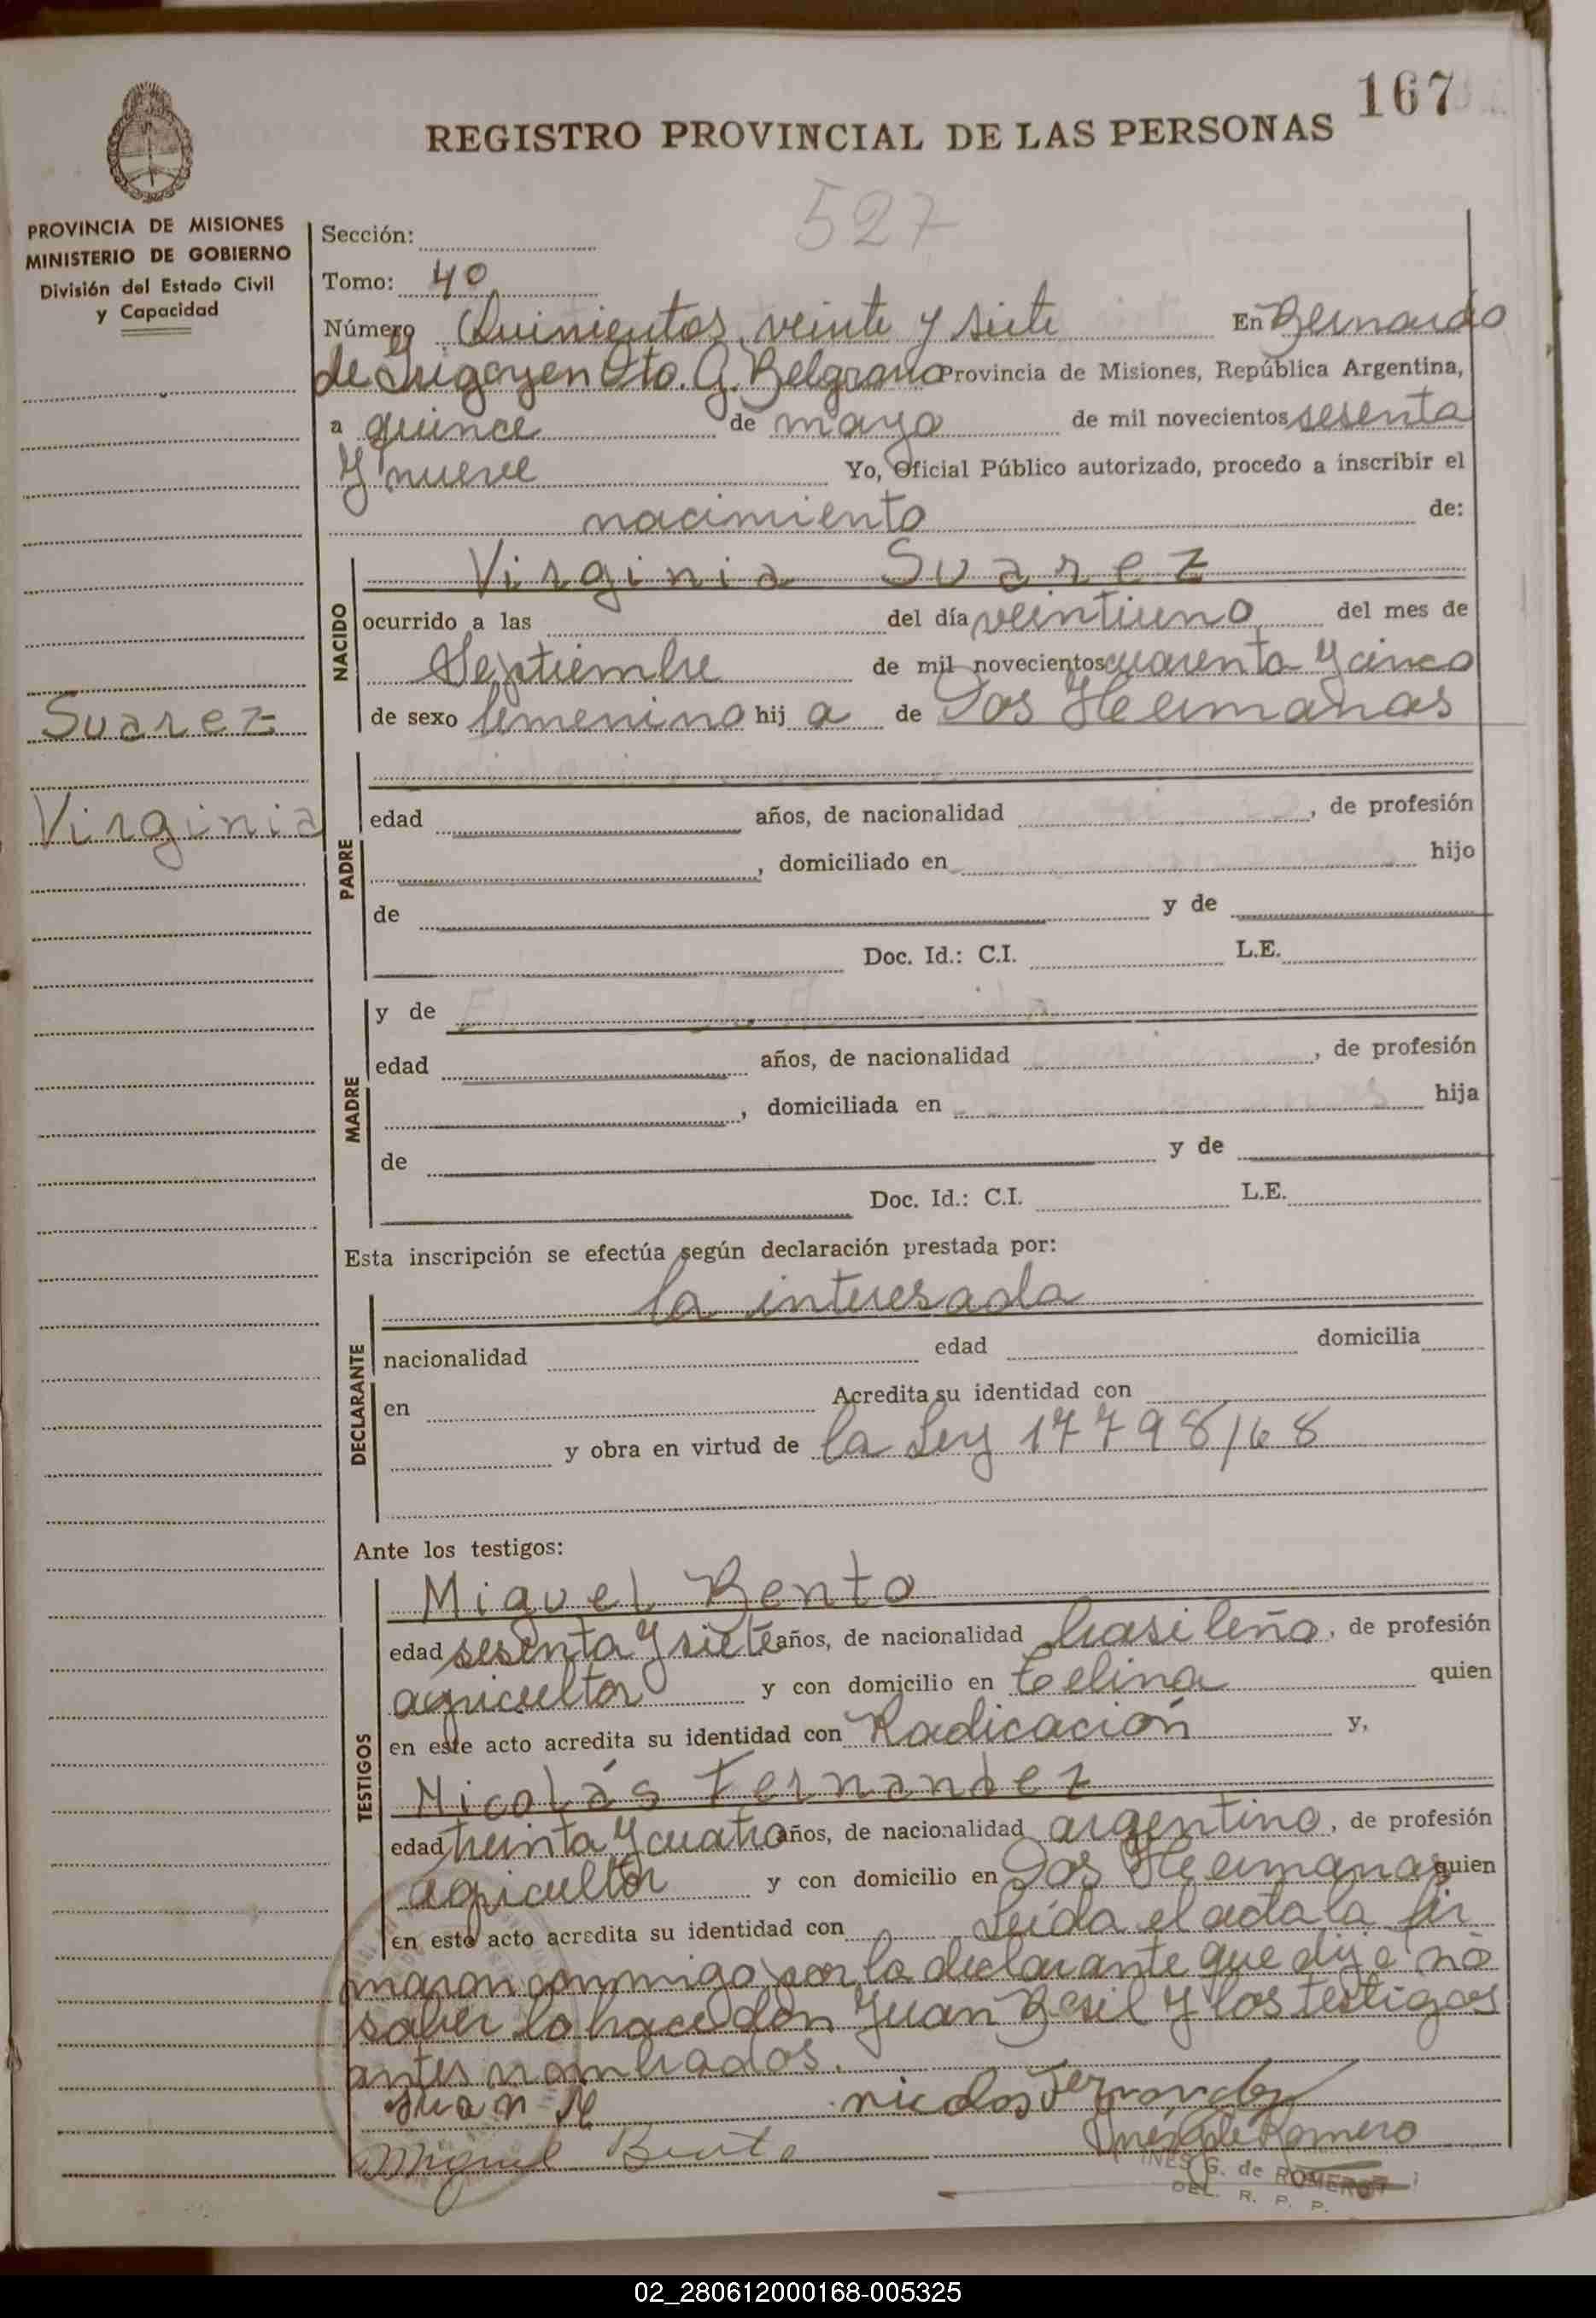 167
REGISTRO PROVINCIAL DE LAS PERSONAS
527
PROVINCIA DE MISIONES
MINISTERIO DE GOBIERNO
División del Estado Civil
y Capacidad
Sección:
Tomo: 40
Número Quinientos veinte y siete En Bernardo
de Irigoyen Dto. G. Belgrano Provincia de Misiones, República Argentina,
a quince de mayo de mil novecientos sesenta
y nueve Yo, Oficial Público autorizado, procedo a inscribir el
nacimiento de:
NACIDO
Virginia Suarez
ocurrido a las del día veintiuno del mes de
Septiembre de mil novecientos cuarenta y cinco
de sexo femenino hij a de Dos Hermanas
Suarez
Virginia
PADRE
edad años, de nacionalidad , de profesión
, domiciliado en hijo
de y de
Doc. Id.: C.I. L.E.
MADRE
y de
edad años, de nacionalidad , de profesión
, domiciliada en hija
de y de
Doc. Id.: C.I. L.E.
Esta inscripción se efectúa según declaración prestada por:
DECLARANTE
la interesada
nacionalidad edad domicilia
en Acredita su identidad con
y obra en virtud de la Ley 17798/68
Ante los testigos:
TESTIGOS
Miguel Bento
edad sesenta y siete años, de nacionalidad brasileño, de profesión
agricultor y con domicilio en Celina quien
en este acto acredita su identidad con Radicación y,
Nicolás Fernandez
edad treinta y cuatro años, de nacionalidad argentino, de profesión
agricultor y con domicilio en Dos Hermanas quien
en este acto acredita su identidad con Leída el acta la fir
maron conmigo, por la declarante que dijo no
saber lo hace don Juan y los testigos
antes nombrados.
Juan nicolas Fernandez
Miguel Bento Inés G. de Romero
INES G. de ROMERO
DEL. R. P. P.
02_280612000168-005325